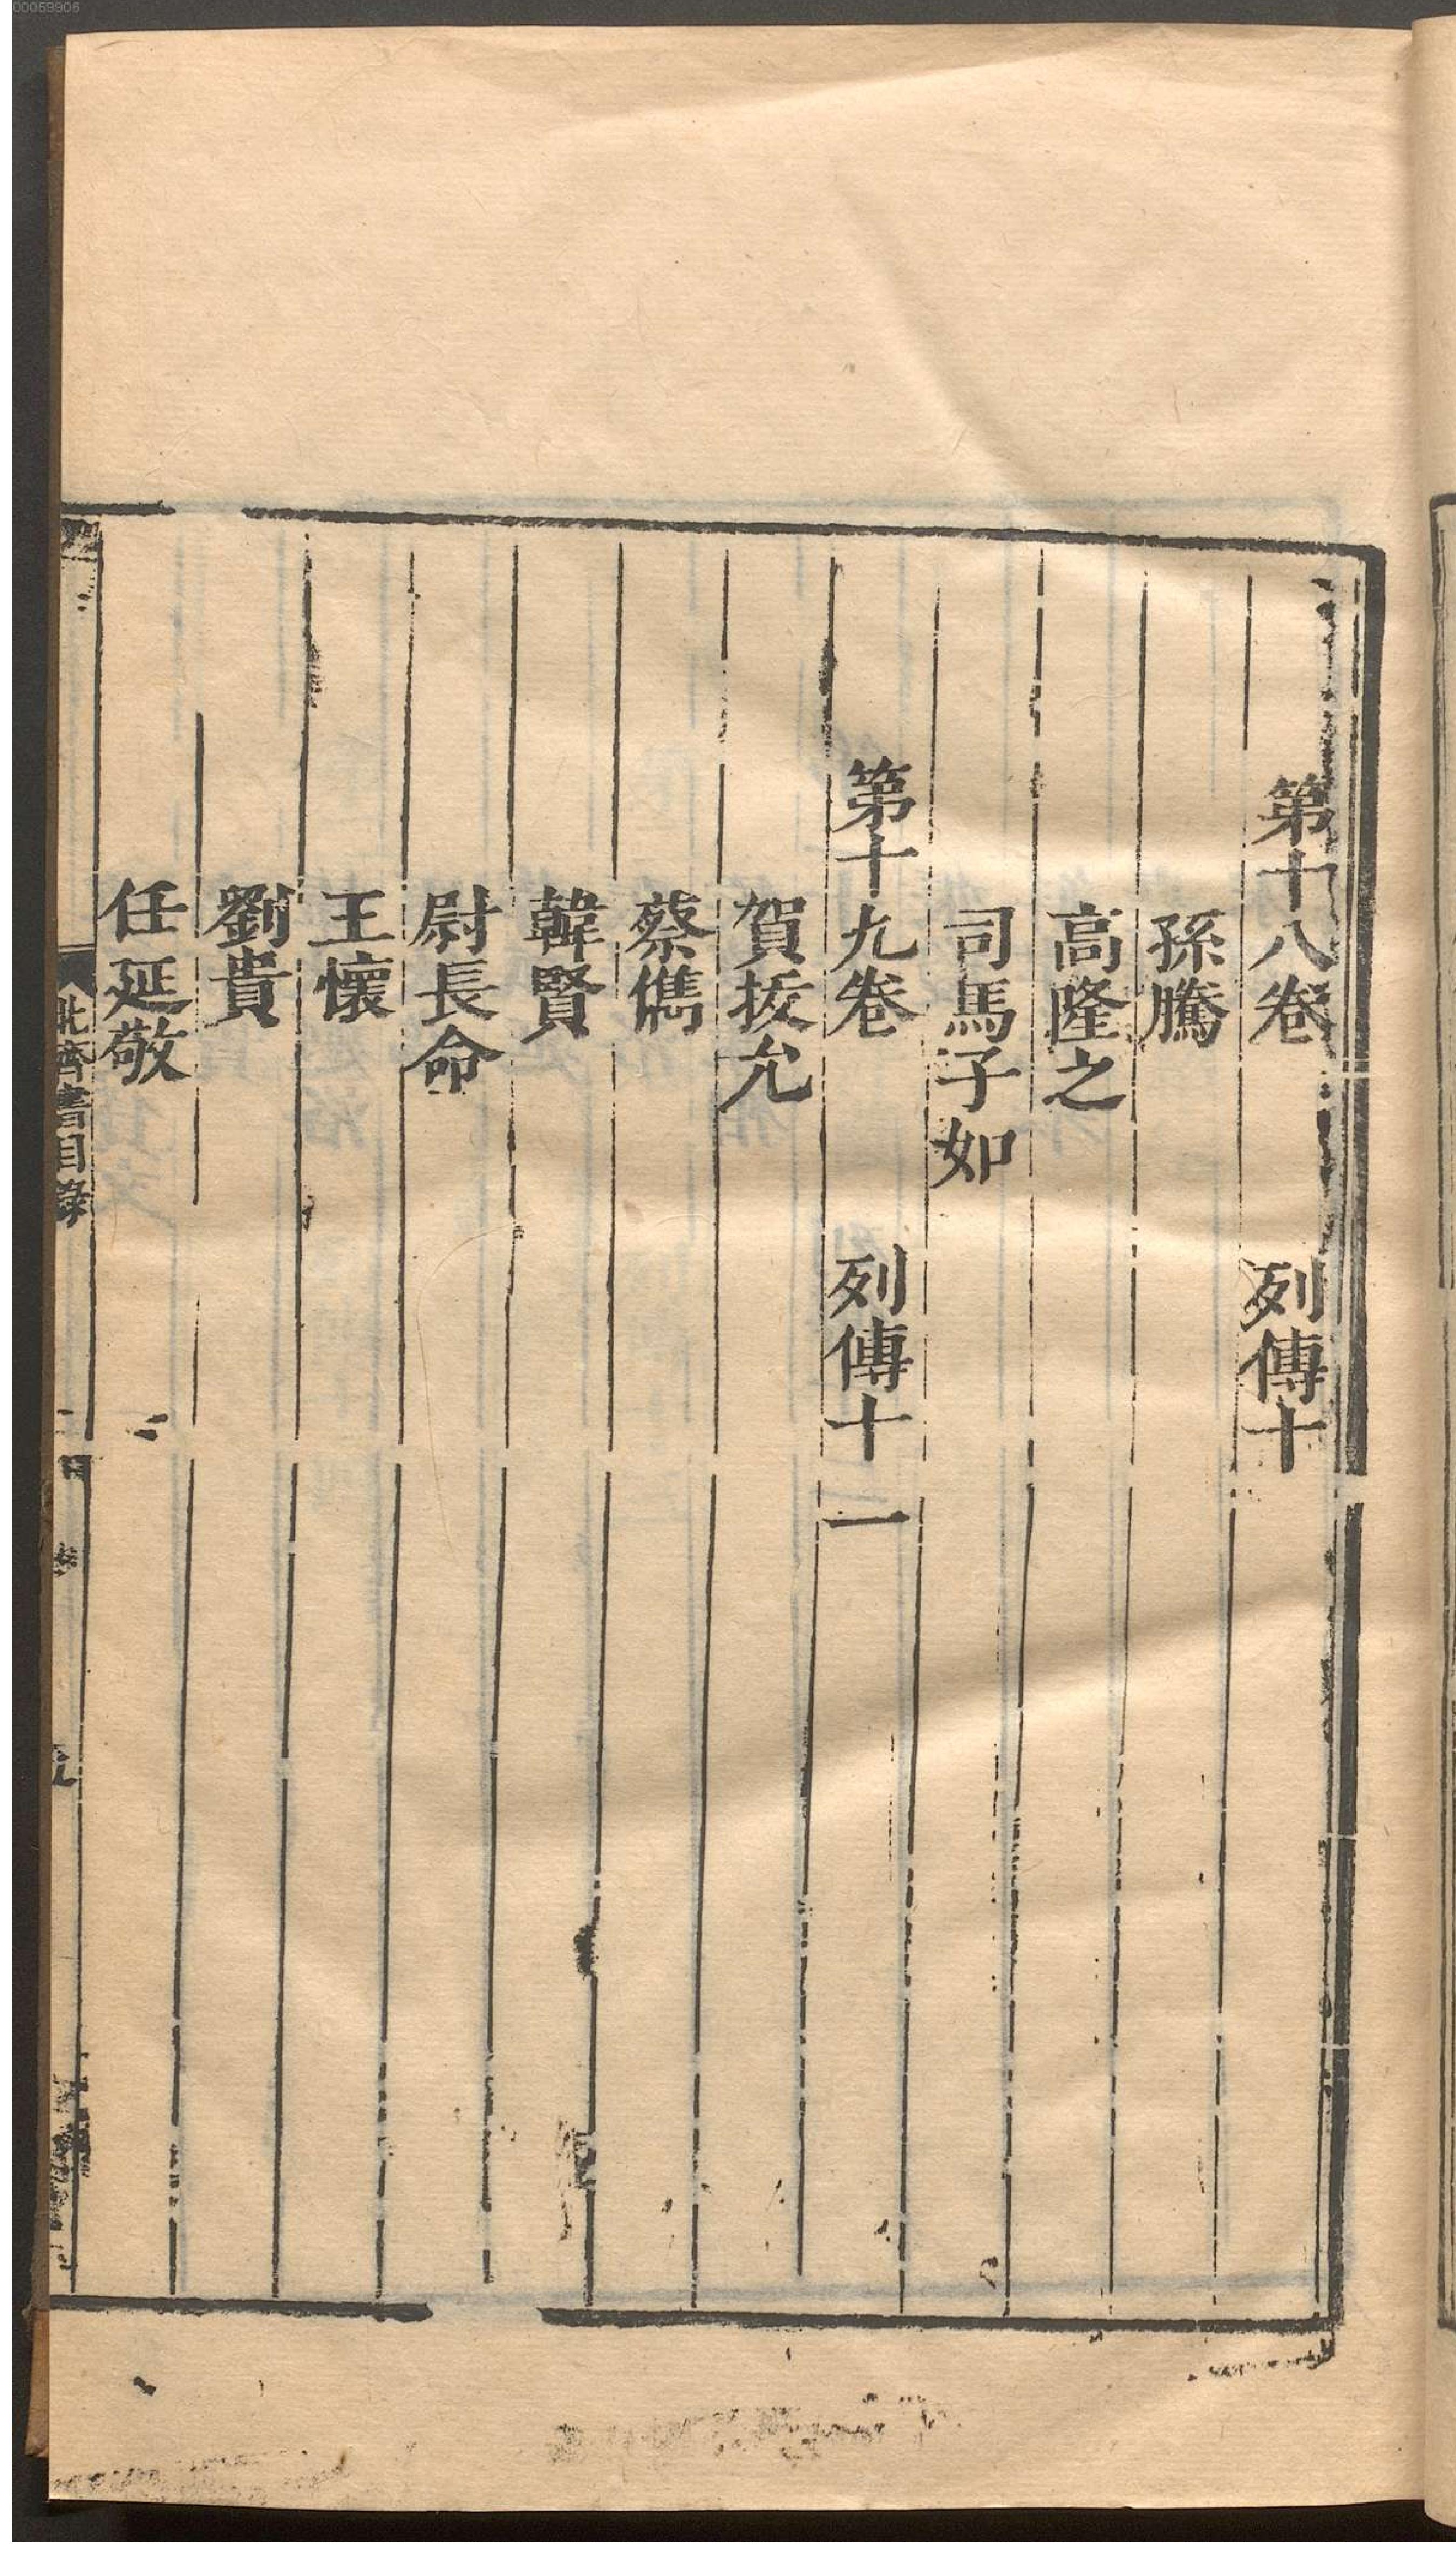 00059906
第十八卷 列傳十
孫騰
高隆之
司馬子如
第十九卷 列傳十一
賀拔允
蔡儁
韓賢
尉長命
王懷
劉貴
任延敬
北齊書目錄